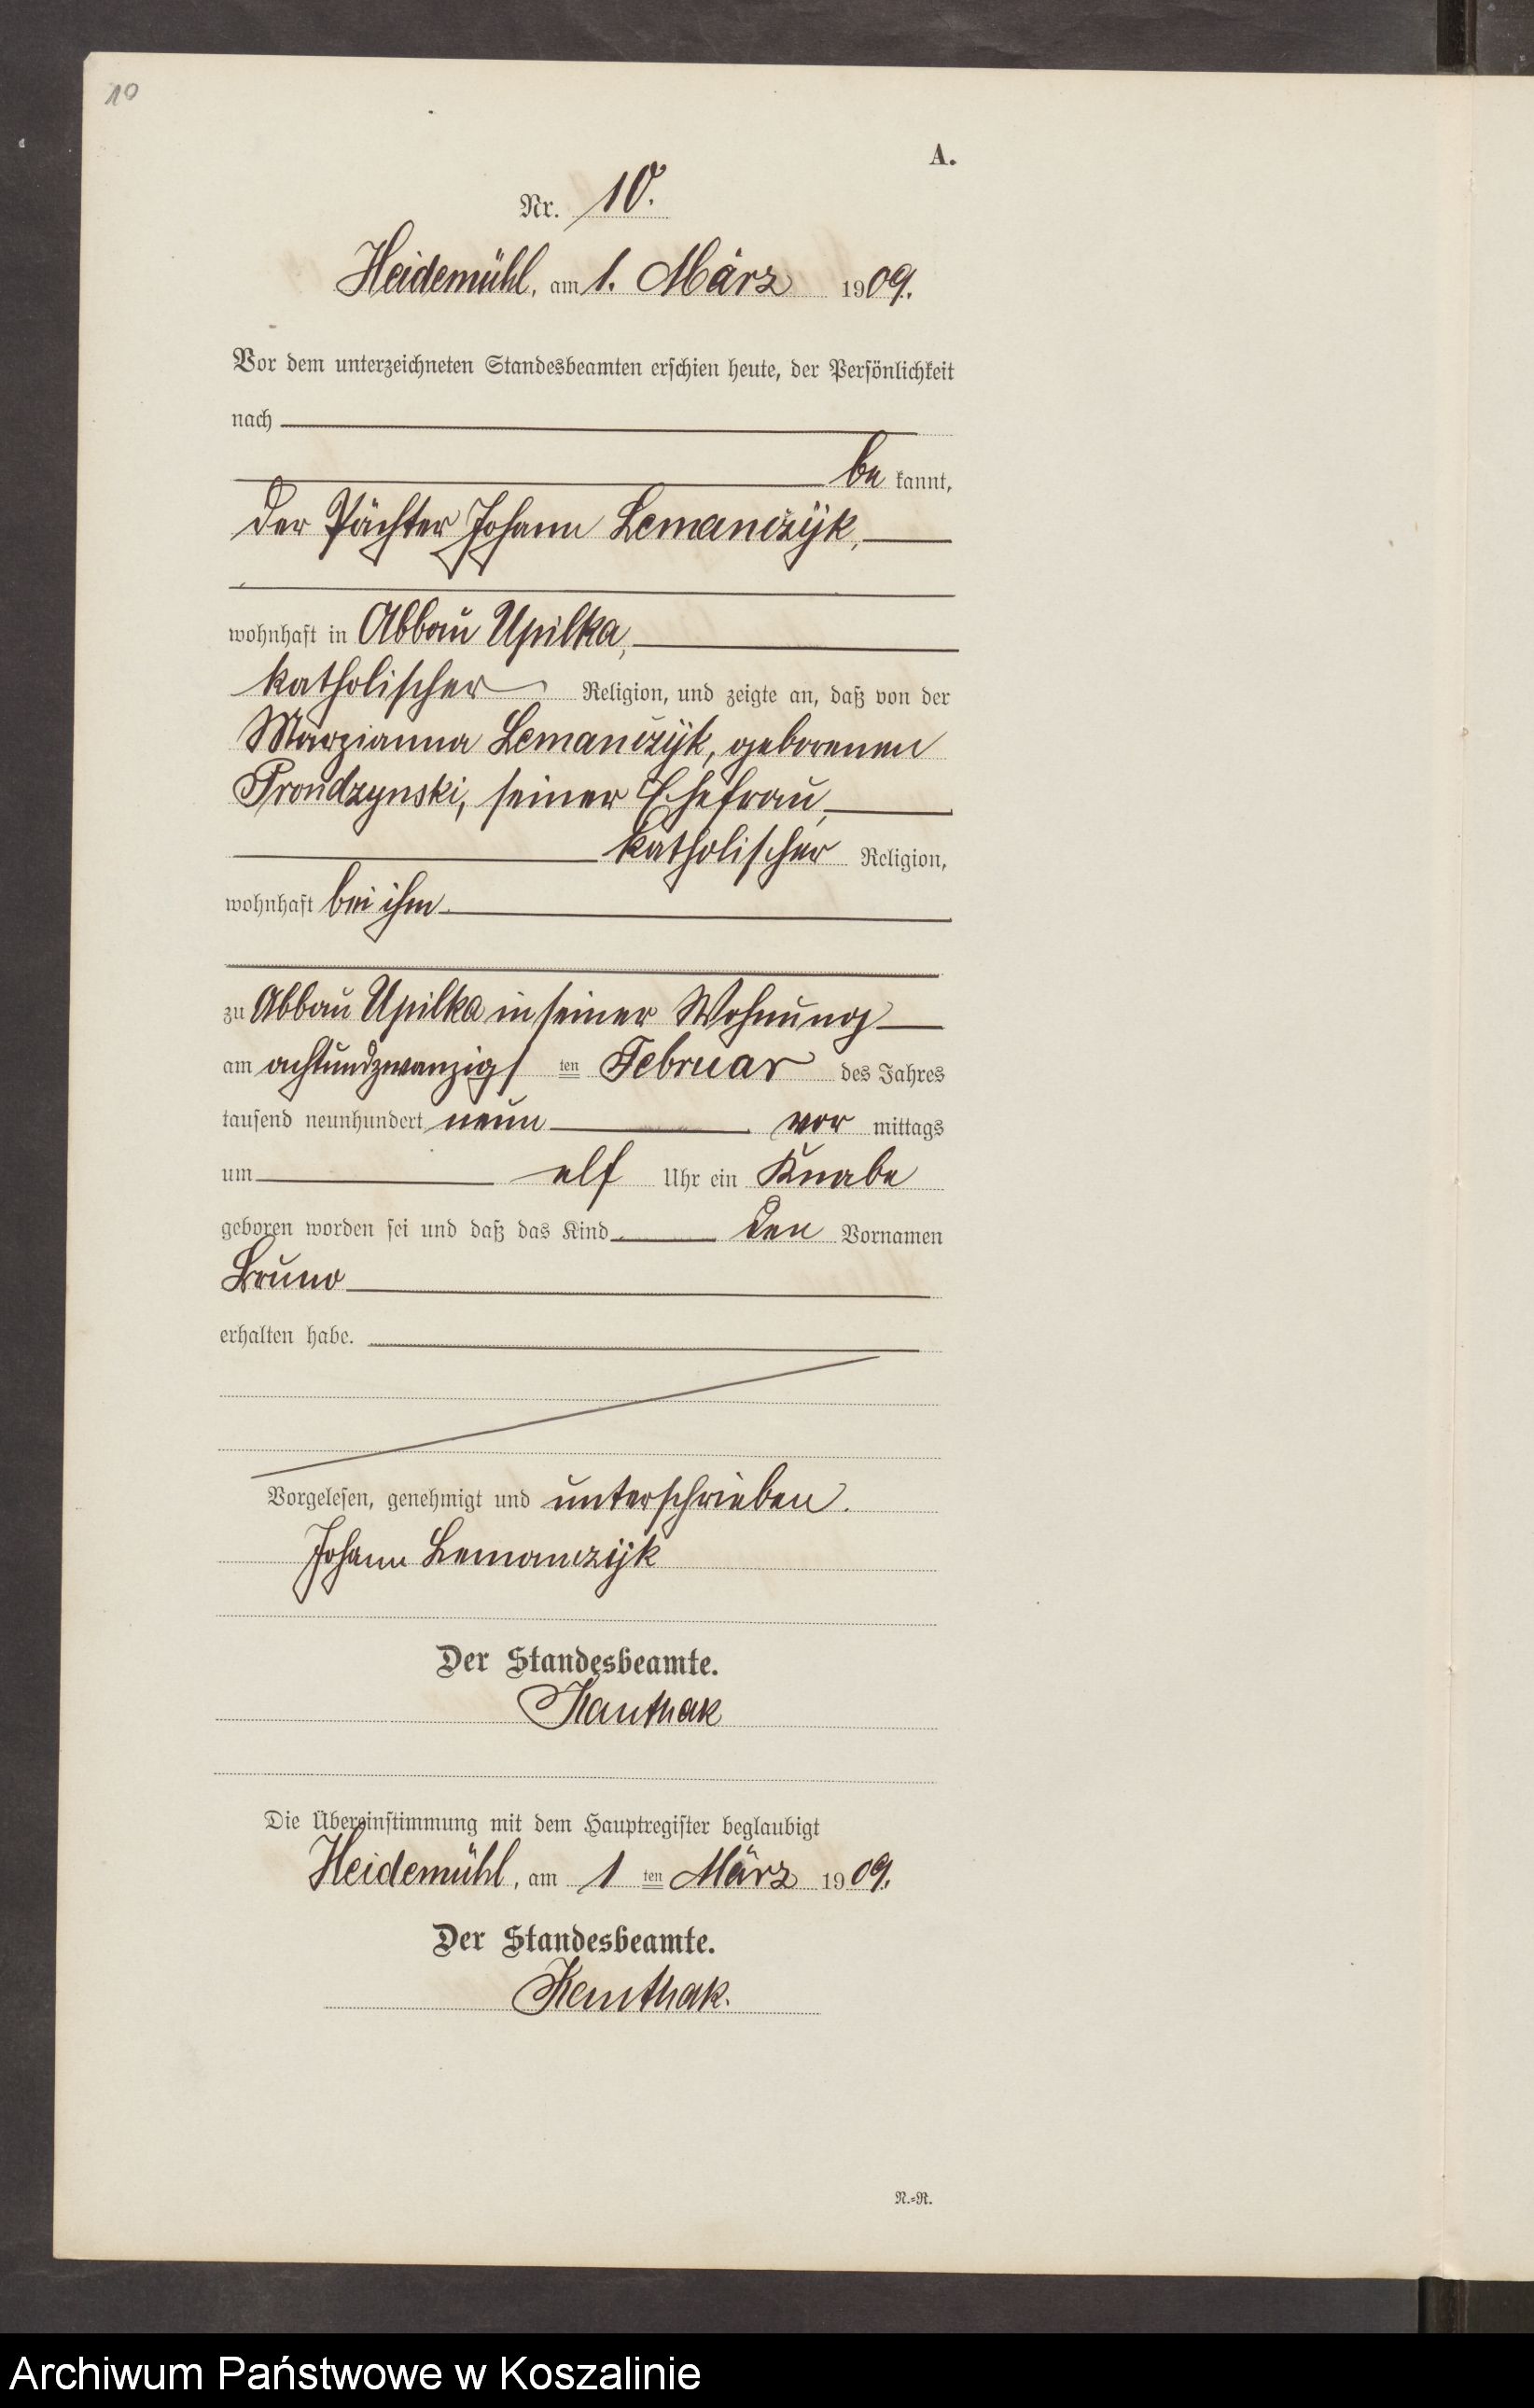 10
A.
Nr. 10.
Heidemühl, am 1. März 1909.
Vor dem unterzeichneten Standesbeamten erschien heute, der Persönlichkeit
nach
be kannt,
der Pächter Johann Lemanczÿk,
wohnhaft in Abbau Upilka,
katholischer Religion, und zeigte an, daß von der
Marzianna Lemanczÿk, geborenen
Prondzynski, seiner Ehefrau,
katholischer Religion,
wohnhaft bei ihm
zu Abbau Upilka in seiner Wohnung
am achtundzwanzigs ten Februar des Jahres
tausend neunhundert neun vor mittags
um elf Uhr ein Knabe
geboren worden sei und daß das Kind den Vornamen
Bruno
erhalten habe.
Vorgelesen, genehmigt und unterschrieben.
Johann Lemanczÿk
Der Standesbeamte.
Kauthak
Die Übereinstimmung mit dem Hauptregister beglaubigt
Heidemühl, am 1 ten März 1909.
Der Standesbeamte.
Kauthak.
N.=R.
Archiwum Państwowe w Koszalinie